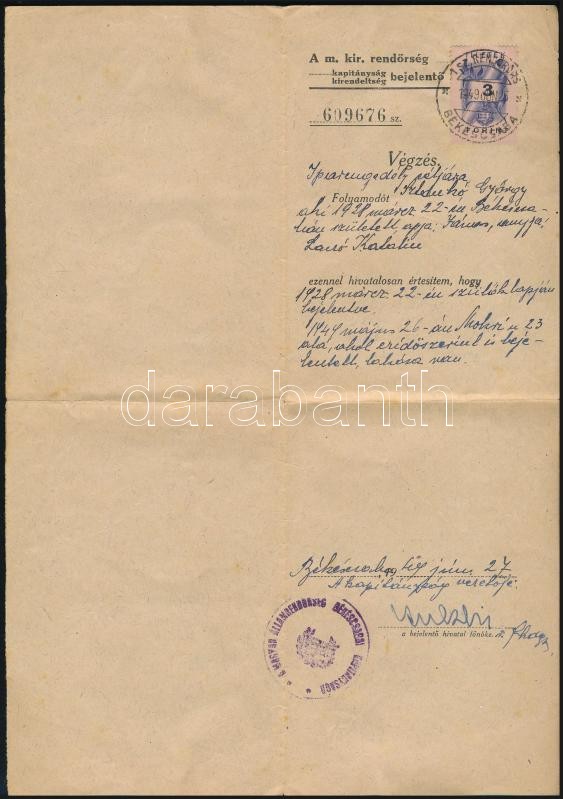 A m. kir. rendőrség
kapitányság
kirendeltség bejelentő
3
FORINT
BÉKÉSCSABA
609676 sz.
Végzés.
Iparengedély céljára
Folyamodót György
aki 1928 márcz 22-én Békéscsa-
bán született, apja: János, anyja:
Katalin
ezennel hivatalosan értesítem, hogy
1928 márcz. 22-én szülők lapján
bejelentve.
1949 május 26-án u 23
alá, ahol ezidőszerint is beje-
lentett, lakása van.
darabanth
Békéscsaba, 49 jún. 27
A kapitányság vezetője:
a bejelentő hivatal főnöke.
A MAGYAR ÁLLAMRENDŐRSÉG BÉKÉSCSABAI KAPITÁNYSÁGA